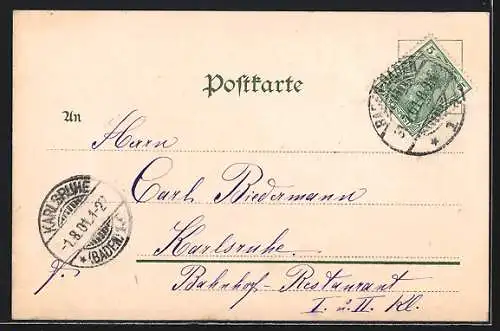 5
BADEN-BADEN
Postkarte
An
Herrn
Carl Biedermann
KARLSRUHE
-1.8.01. 1-2
* (BADEN)
Karlsruhe.
Bahnhof-Restaurant
I. u. II Kl.